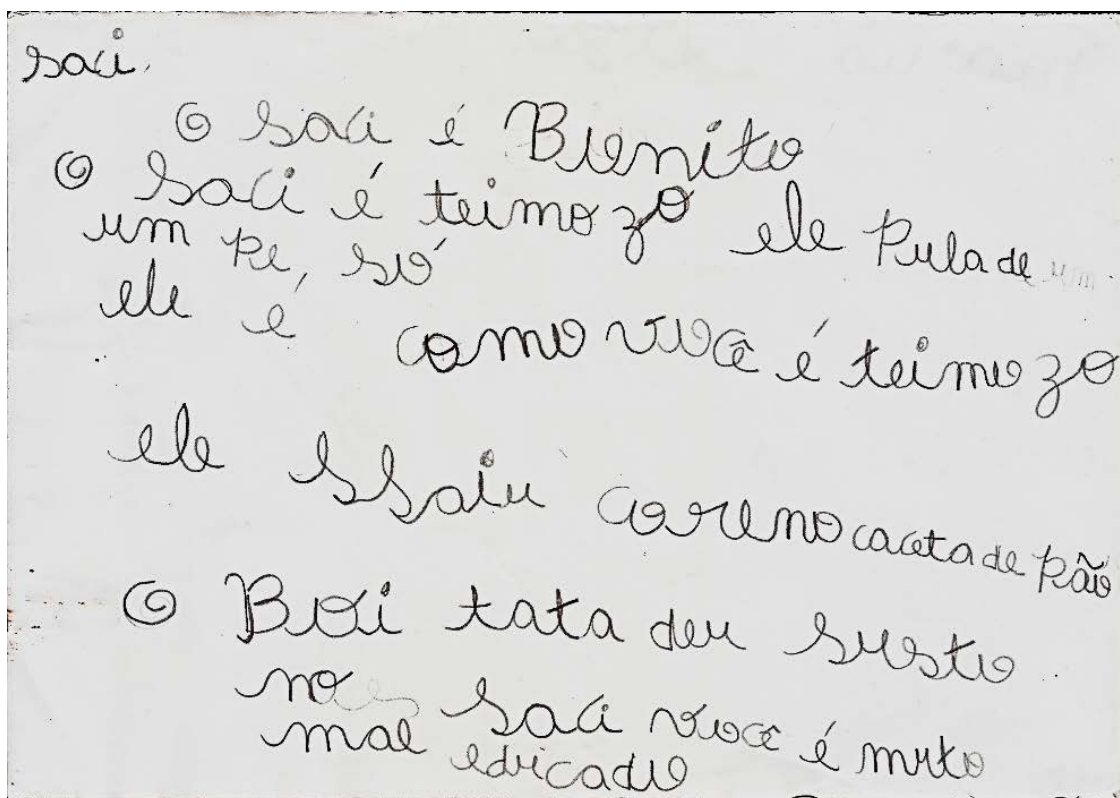 saci.
O saci é Bienito
O saci é teimozo ele pula de um
um pe, só
ele é como você é teimozo
ele ssaiu coreno caceta de pão
O Boi tata deu susto
no saci você é muto
mal edricadio